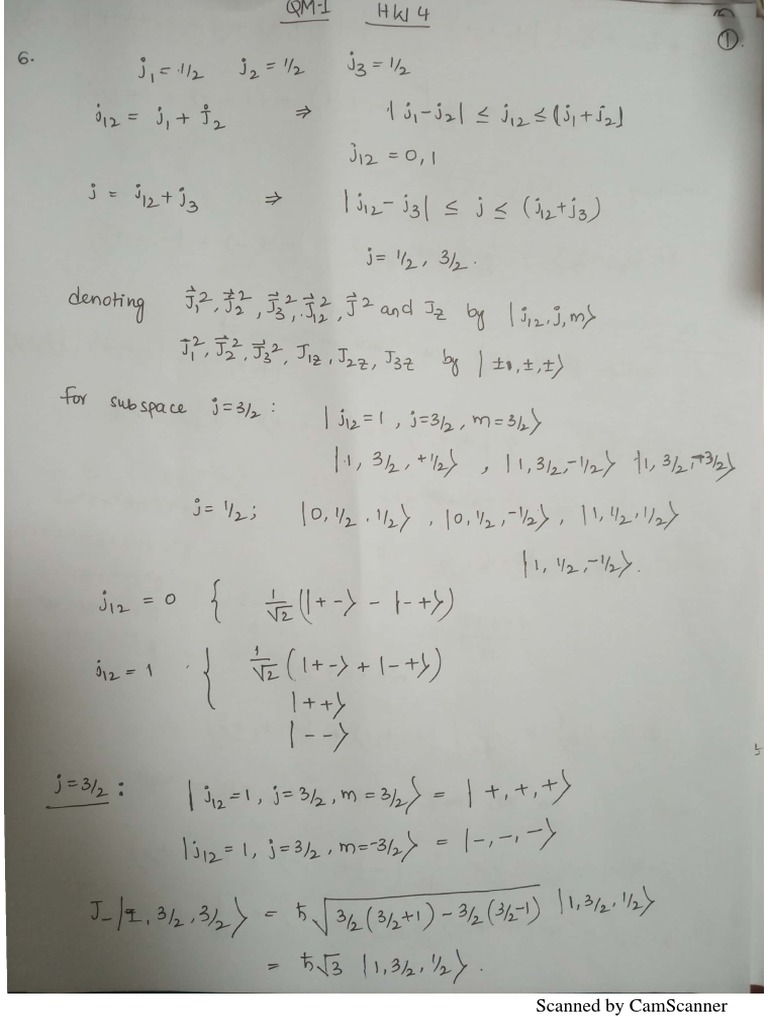 QM-1 HW 4
①
6. j₁ = 1/2 j₂ = 1/2 j₃ = 1/2
j₁₂ = j₁ + j₂ ⇒ |j₁-j₂| ≤ j₁₂ ≤ (j₁+j₂)
j₁₂ = 0, 1
j = j₁₂ + j₃ ⇒ |j₁₂ - j₃| ≤ j ≤ (j₁₂+j₃)
j = 1/2, 3/2.
denoting J⃗₁², J⃗₂², J⃗₃², J⃗₁₂², J⃗² and J_z by |j₁₂, j, m⟩
J⃗₁², J⃗₂², J⃗₃², J₁z, J₂z, J₃z by |±, ±, ±⟩
for subspace j = 3/2 : |j₁₂=1, j=3/2, m=3/2⟩
|1, 3/2, +1/2⟩, |1, 3/2, -1/2⟩ |1, 3/2, -3/2⟩
j = 1/2; |0, 1/2, 1/2⟩, |0, 1/2, -1/2⟩, |1, 1/2, 1/2⟩
|1, 1/2, -1/2⟩.
j₁₂ = 0 { 1/√2 (|+-⟩ - |-+⟩)
j₁₂ = 1 { 1/√2 (|+-⟩ + |-+⟩)
|++⟩
|--⟩
j = 3/2 : |j₁₂=1, j=3/2, m=3/2⟩ = |+, +, +⟩
|j₁₂=1, j=3/2, m=-3/2⟩ = |-, -, -⟩
J₋|1, 3/2, 3/2⟩ = ħ √(3/2(3/2+1) - 3/2(3/2-1)) |1, 3/2, 1/2⟩
= ħ√3 |1, 3/2, 1/2⟩.
Scanned by CamScanner